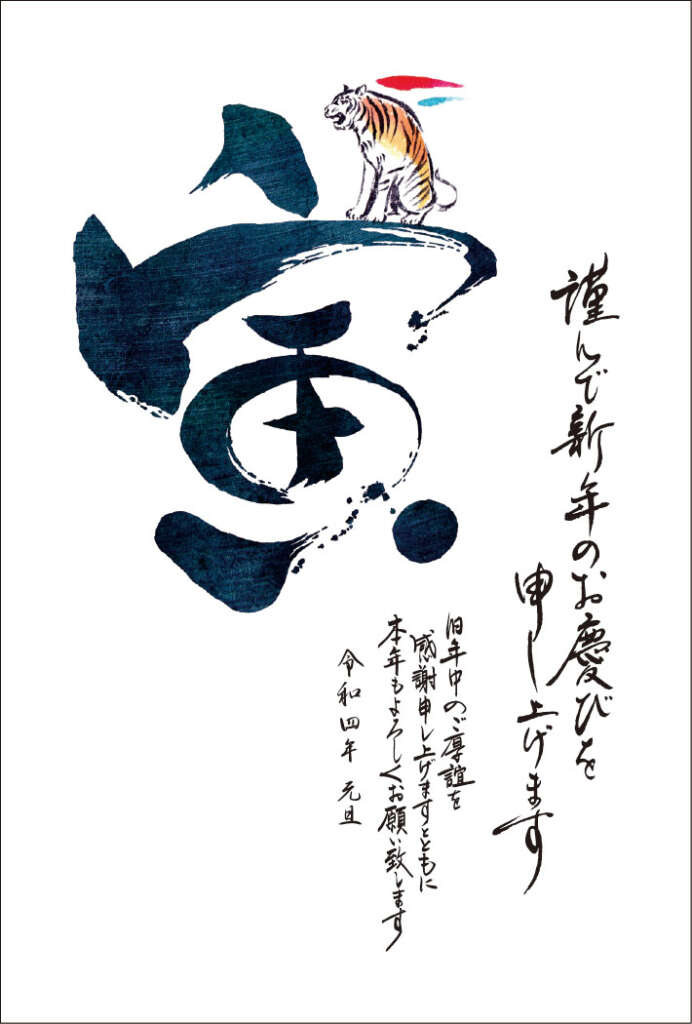 寅
謹んで新年のお慶びを
申し上げます
旧年中のご厚誼を
感謝申し上げますとともに
本年もよろしくお願い致します
令和四年 元旦